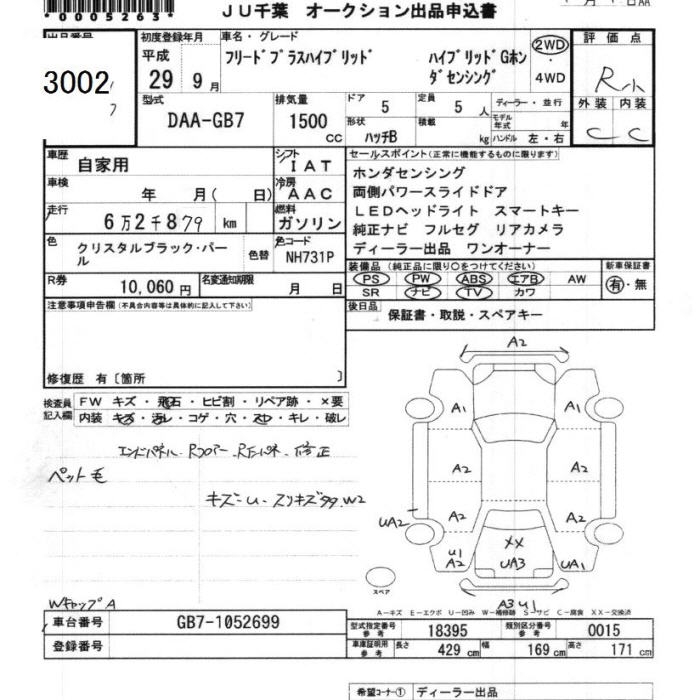 *0005263*
JU千葉 オークション出品申込書
評価点
R小
外装 内装
C C
3002
初度登録年月
平成
29 9月
車名・グレード
フリードプラスハイブリッド ハイブリッドGホンダセンシング
2WD・4WD
型式
DAA-GB7
排気量
1500 cc
ドア 5
定員 5人
ディーラー・並行
形状 ハッチB
積載 kg
モデル年式 年
ハンドル 左・右
車歴 自家用
シフト IAT
車検 年 月( 日)
冷房 AAC
走行 6万2千879 km
燃料 ガソリン
色 クリスタルブラック・パール
色替
色コード NH731P
R券 10,060円
名変通知期限 月 日
セールスポイント(正常に機能するものに限ります)
ホンダセンシング
両側パワースライドドア
LEDヘッドライト スマートキー
純正ナビ フルセグ リアカメラ
ディーラー出品 ワンオーナー
装備品(純正品に限り○をつけてください)
PS PW ABS エアB AW
SR ナビ TV カワ
新車保証書
有・無
後日品 保証書・取説・スペアキー
注意事項申告欄(不具合内容等は具体的に記入して下さい)
修復歴 有〔箇所 〕
検査員記入欄
FW キズ・飛石・ヒビ割・リペア跡・×要
内装 キズ・汚レ・コゲ・穴・スレ・キレ・破レ
エンドパネル・Rフロアー・ 修正
ペット毛
WキャップA
A2
A1 A1
A2 A2
A2 A2
UA2
U1
A2
XX
UA3
UA1
A3 U1
スペア
A－キズ E－エクボ U－凹み W－補修跡 S－サビ C－腐食 XX－交換済
車台番号 GB7-1052699
登録番号
型式指定番号 参考 18395
類別区分番号 参考 0015
車庫証明用 参考 長さ 429cm 幅 169cm 高さ 171cm
希望コーナー① ディーラー出品